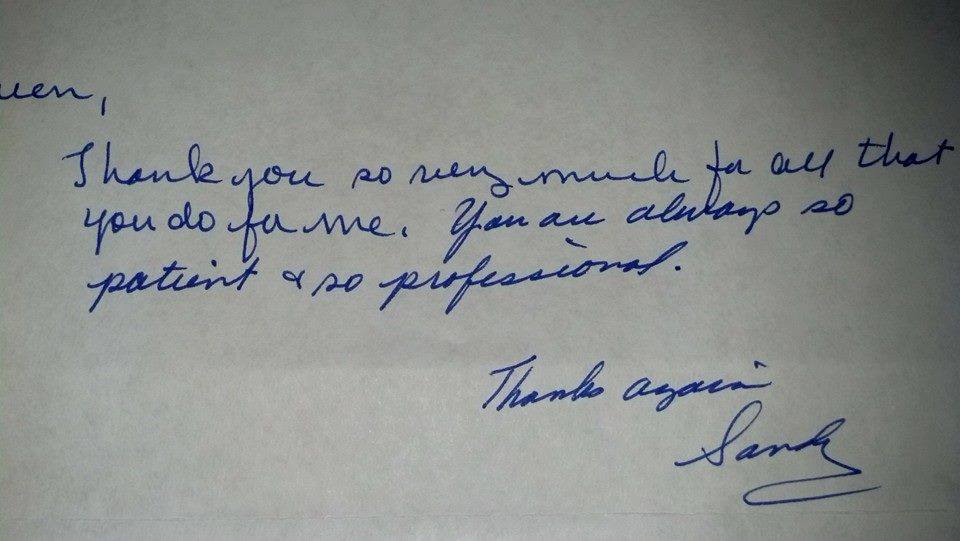 uen,
Thank you so very much for all that
you do for me. You are always so
patient & so professional.
Thanks again
Sandy